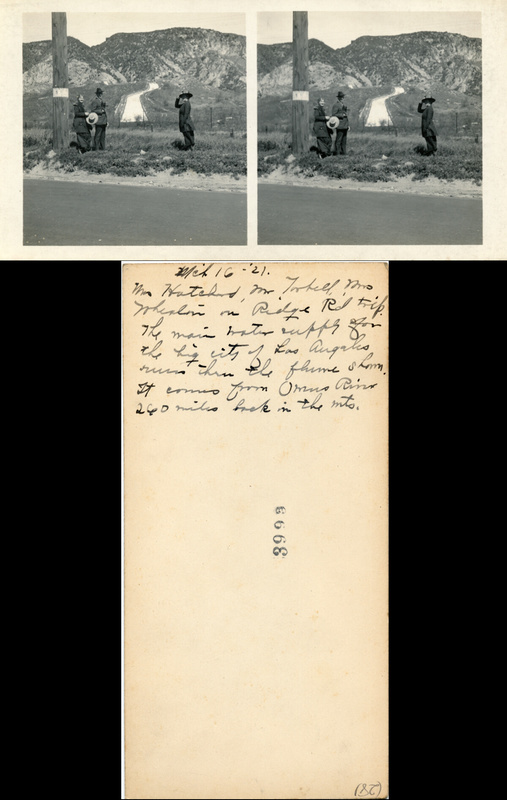 Mch 16 - '21.
Mr Watched, Mr Tobell, Mrs
Whealon on Ridge Rd trip.
The main water supply for
the big city of Los Angeles
runs thru the flume shown.
It comes from Owens River
260 miles back in the mts.
3999
(82)